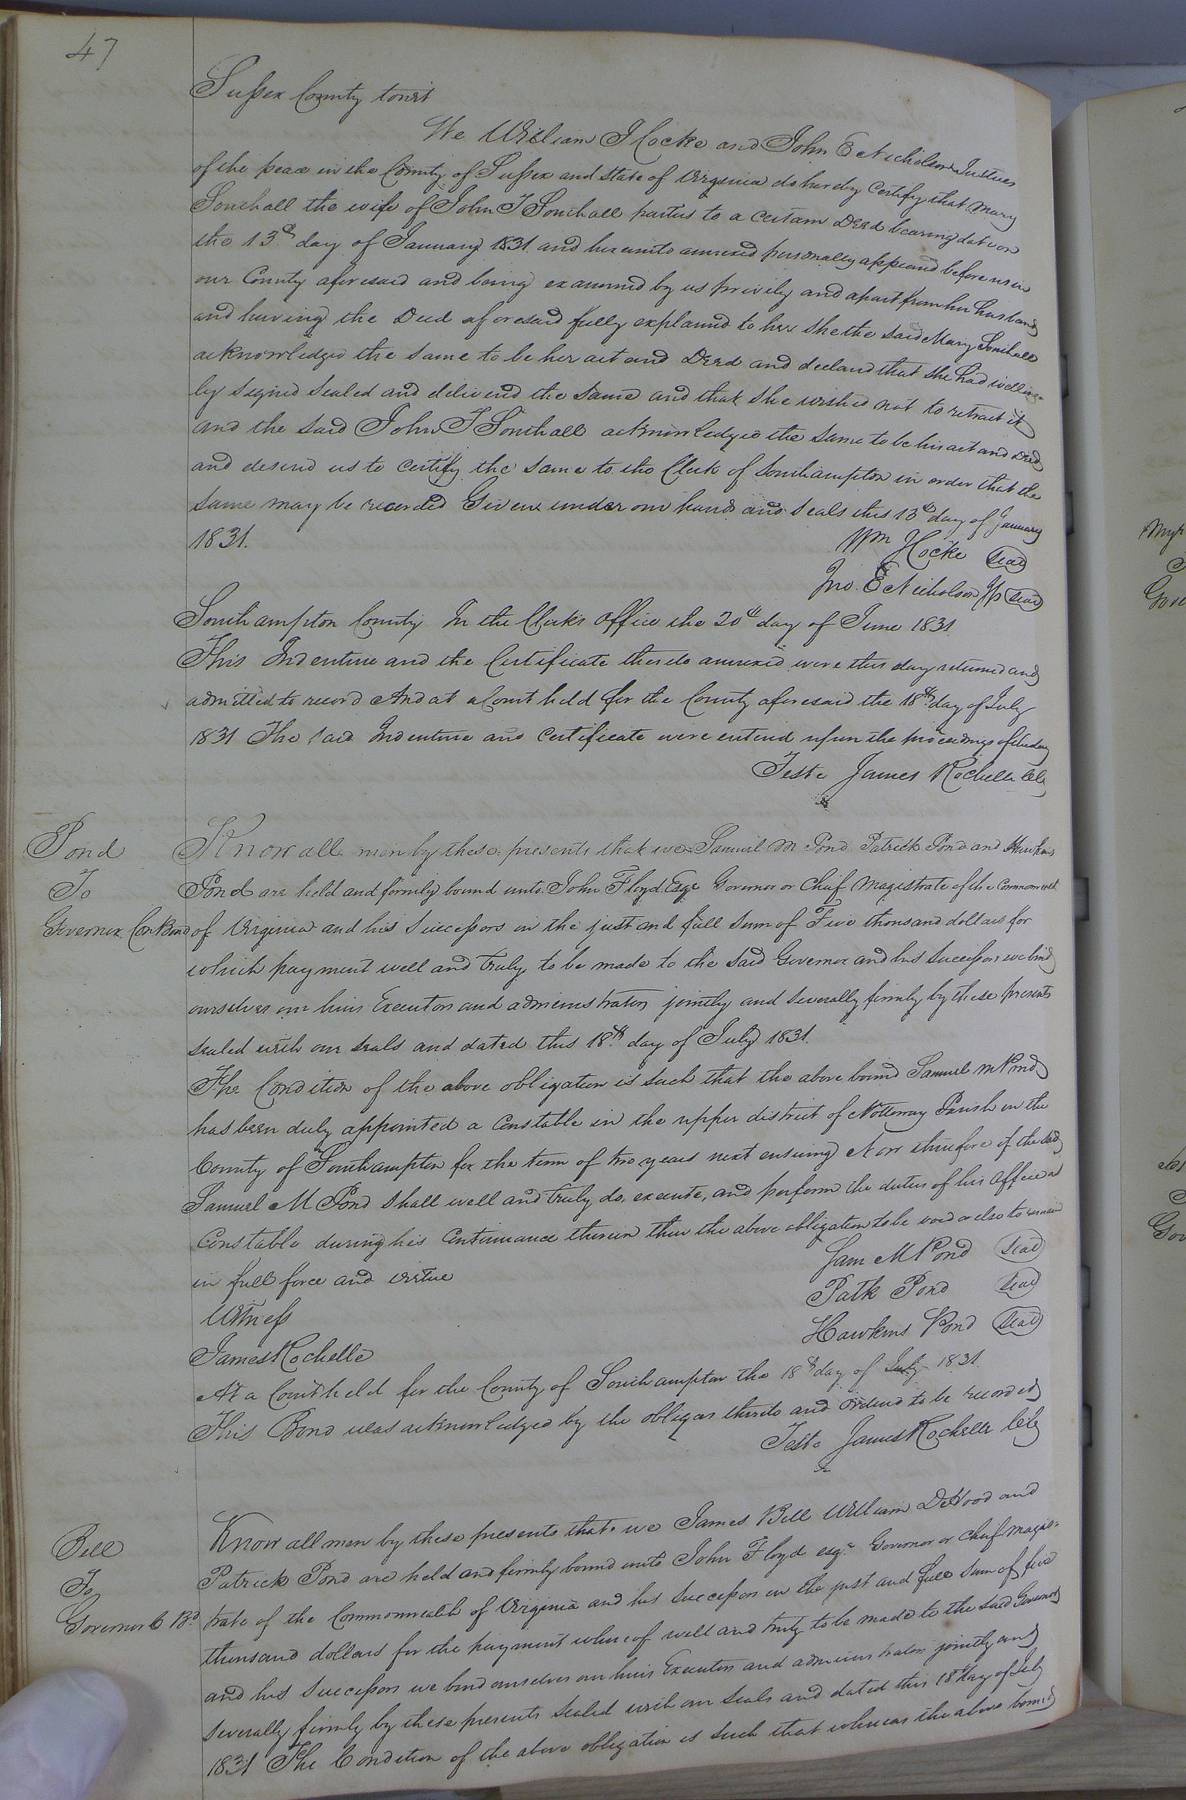 47
Sussex County towit
We William J Cocke and John E Nicholson Justices
of the peace in the County of Sussex and State of Virginia do hereby Certify that Mary
Southall the wife of John T Southall parties to a certain Deed bearing date on
the 13th day of January 1831 and hereunto annexed personally appeared before us in
our County aforesaid and being examined by us privily and apart from her husband
and having the Deed aforesaid fully explained to her she the said Mary Southall
acknowledged the same to be her act and Deed and declared that she had willing-
ly signed sealed and delivered the same and that she wished not to retract it
and the said John T Southall acknowledged the same to be his act and Deed
and desired us to certify the same to the Clerk of Southampton in order that the
same may be recorded Given under our hands and seals this 13th day of January
1831.
Wm J Cocke Seal
Jno. E Nicholson Jp Seal
Southampton County In the Clerks Office the 20th day of June 1831
This Indenture and the Certificate thereto annexed were this day returned and
admitted to record And at a Court held for the County aforesaid the 18th day of July
1831 The said Indenture and Certificate were entered upon the proceedings of the day
Teste James Rochelle Clk
Pond
To
Governor Con Bond
Know all men by these presents that we Samuel M Pond Patrick Pond and Hawkins
Pond are held and firmly bound unto John Floyd Esqr Governor or Chief Magistrate of the Commonwealth
of Virginia and his Successors in the just and full sum of Two thousand dollars for
which payment well and truly to be made to the said Governor and his Successors we bind
ourselves our heirs Executors and administrators jointly and severally firmly by these presents
sealed with our seals and dated this 18th day of July 1831.
The Condition of the above obligation is such that the above bound Samuel M Pond
has been duly appointed a Constable in the upper district of Nottoway Parish in the
County of Southampton for the term of two years next ensuing Now therefore if the said
Samuel M Pond shall well and truly do, execute, and perform the duties of his office as
Constable during his Continuance therein then the above obligation to be void or else to remain
in full force and virtue
Sam M Pond Seal
Witness
Patk Pond Seal
James Rochelle
Hawkins Pond Seal
At a Court held for the County of Southampton the 18th day of July 1831
This Bond was acknowledged by the obligors thereto and ordered to be recorded
Teste James Rochelle Clk
Bell
To
Governor C Bd
Know all men by these presents that we James Bell William D Hood and
Patrick Pond are held and firmly bound unto John Floyd esqr. Governor or chief magis-
trate of the Commonwealth of Virginia and his Successors in the just and full sum of two
thousand dollars for the payment whereof well and truly to be made to the said Governor
and his Successors we bind ourselves our heirs Executors and administrators jointly and
severally firmly by these presents Sealed with our Seals and dated this 18th day of July
1831 The Condition of the above obligation is such that whereas the above bound